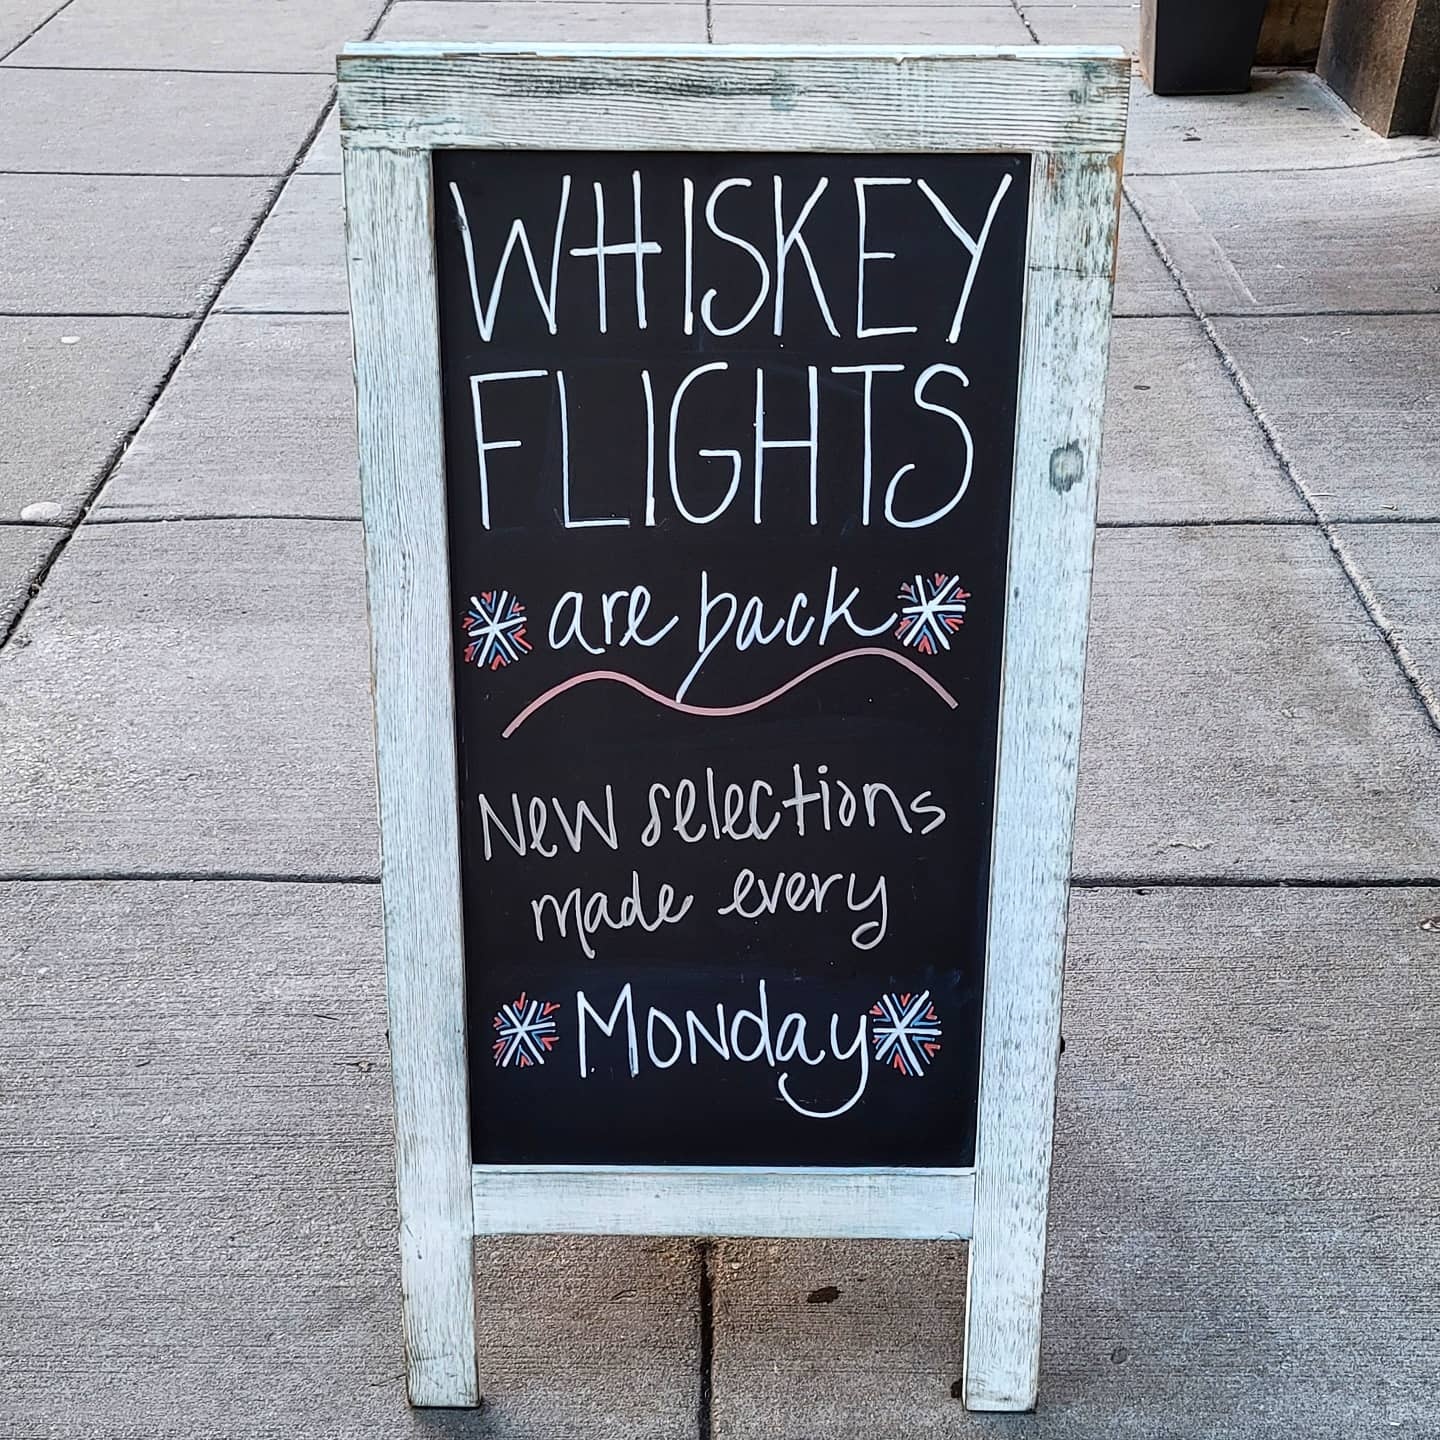 WHISKEY
FLIGHTS
are back
New selections
made every
Monday